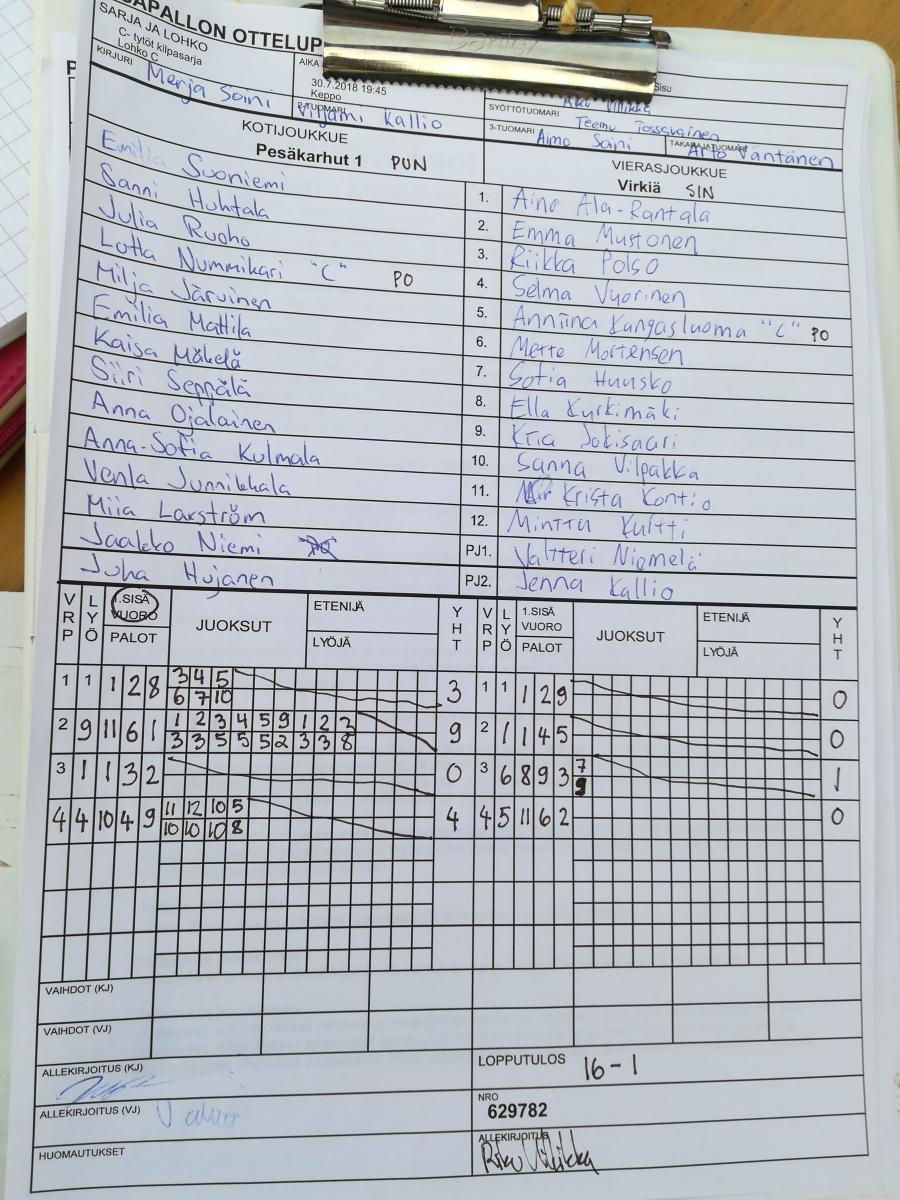 SAPALLON OTTELUP
SARJA JA LOHKO
C- tytöt kilpasarja
Lohko C
AIKA
30.7.2018 19:45
Keppo
Sisu
KIRJURI Merja Soini
TUOMARI Viljami Kallio
SYÖTTÖTUOMARI Riku Vilikka
Teemu Tossavainen
3-TUOMARI Aimo Soini
TAKARAJATUOMARI Arto Väntänen
KOTIJOUKKUE
Pesäkarhut 1 PUN
VIERASJOUKKUE
Virkiä SIN
Emilia Suoniemi 1. Aino Ala-Rantala
Sanni Huhtala 2. Emma Mustonen
Julia Ruoho 3. Riikka Polso
Lotta Nummikari "C" PO 4. Selma Vuorinen
Milja Järvinen 5. Anniina Kangasluoma "C" PO
Emilia Mattila 6. Mette Mortensen
Kaisa Mäkelä 7. Sofia Huusko
Siiri Seppälä 8. Ella Kyrkimäki
Anna Ojalainen 9. Kria Jokisaari
Anna-Sofia Kulmala 10. Sanna Vilpakka
Venla Junnikkala 11. Krista Kontio
Miia Laxström 12. Minttu Kultti
Jaakko Niemi PJ1. Valtteri Niemelä
Juha Hujanen PJ2. Jenna Kallio
VRP LYÖ 1.SISÄ VUORO PALOT JUOKSUT ETENIJÄ LYÖJÄ YHT VRP LYÖ 1.SISÄ VUORO PALOT JUOKSUT ETENIJÄ LYÖJÄ YHT
1 1 1 2 8 3 4 5 3 1 1 1 2 9 0
6 7 10
2 9 11 6 1 1 2 3 4 5 9 1 2 3 9 2 1 1 4 5 0
3 3 5 5 5 2 3 3 8
3 1 1 3 2 0 3 6 8 9 3 7 1
9
4 4 10 4 9 11 12 10 5 4 4 5 11 6 2 0
10 10 10 8
VAIHDOT (KJ)
VAIHDOT (VJ)
ALLEKIRJOITUS (KJ)
LOPPUTULOS 16-1
ALLEKIRJOITUS (VJ)
NRO
629782
HUOMAUTUKSET
ALLEKIRJOITUS
Riku Vilikka